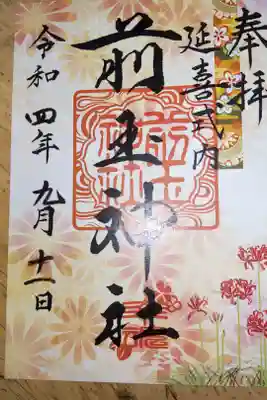 奉拝
延喜式内
前玉神社
令和四年九月十一日
前玉神社